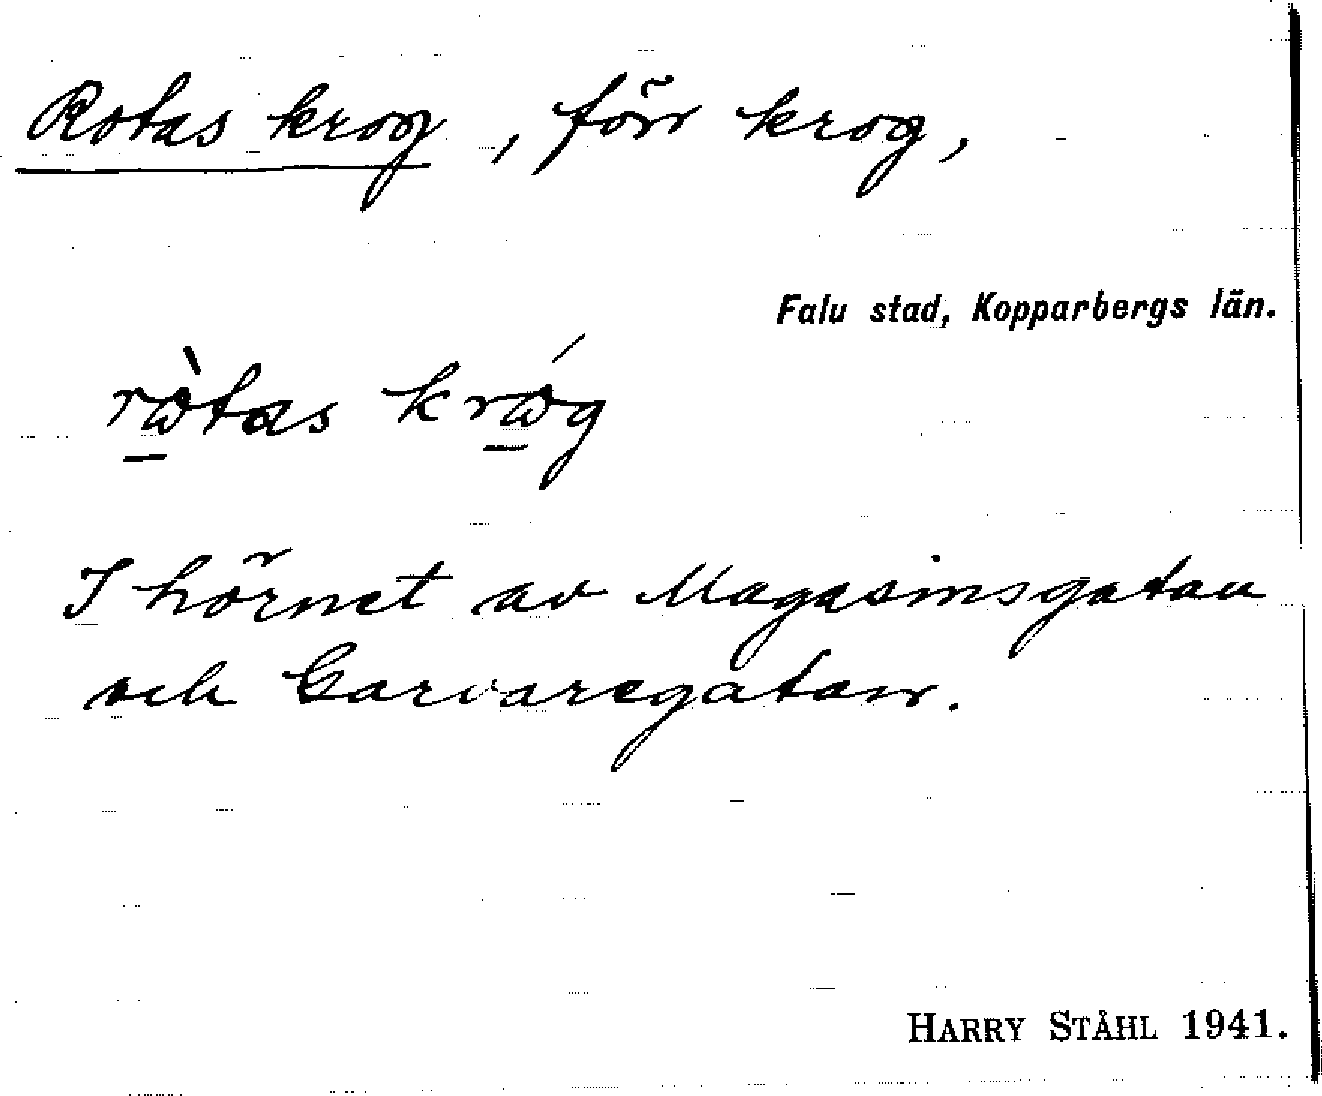 Rotas krog, förr krog,
Falu stad, Kopparbergs län.
rὼ̲tas krώ̲g
I hörnet av Magasinsgatan
och Garvaregatan.
HARRY STÅHL 1941.